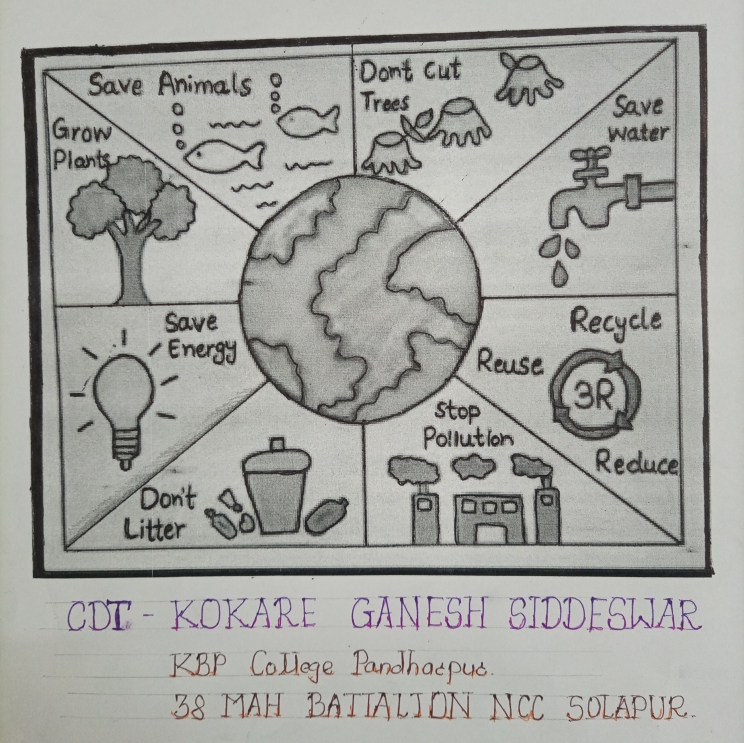 Save Animals
Dont Cut
Trees
Save
water
Grow
Plants
Save
Energy
Recycle
Reuse
3R
Reduce
Stop
Pollution
Don't
Litter
CDT - KOKARE GANESH SIDDESWAR
KBP College Pandharpur.
38 MAH BATTALION NCC SOLAPUR.